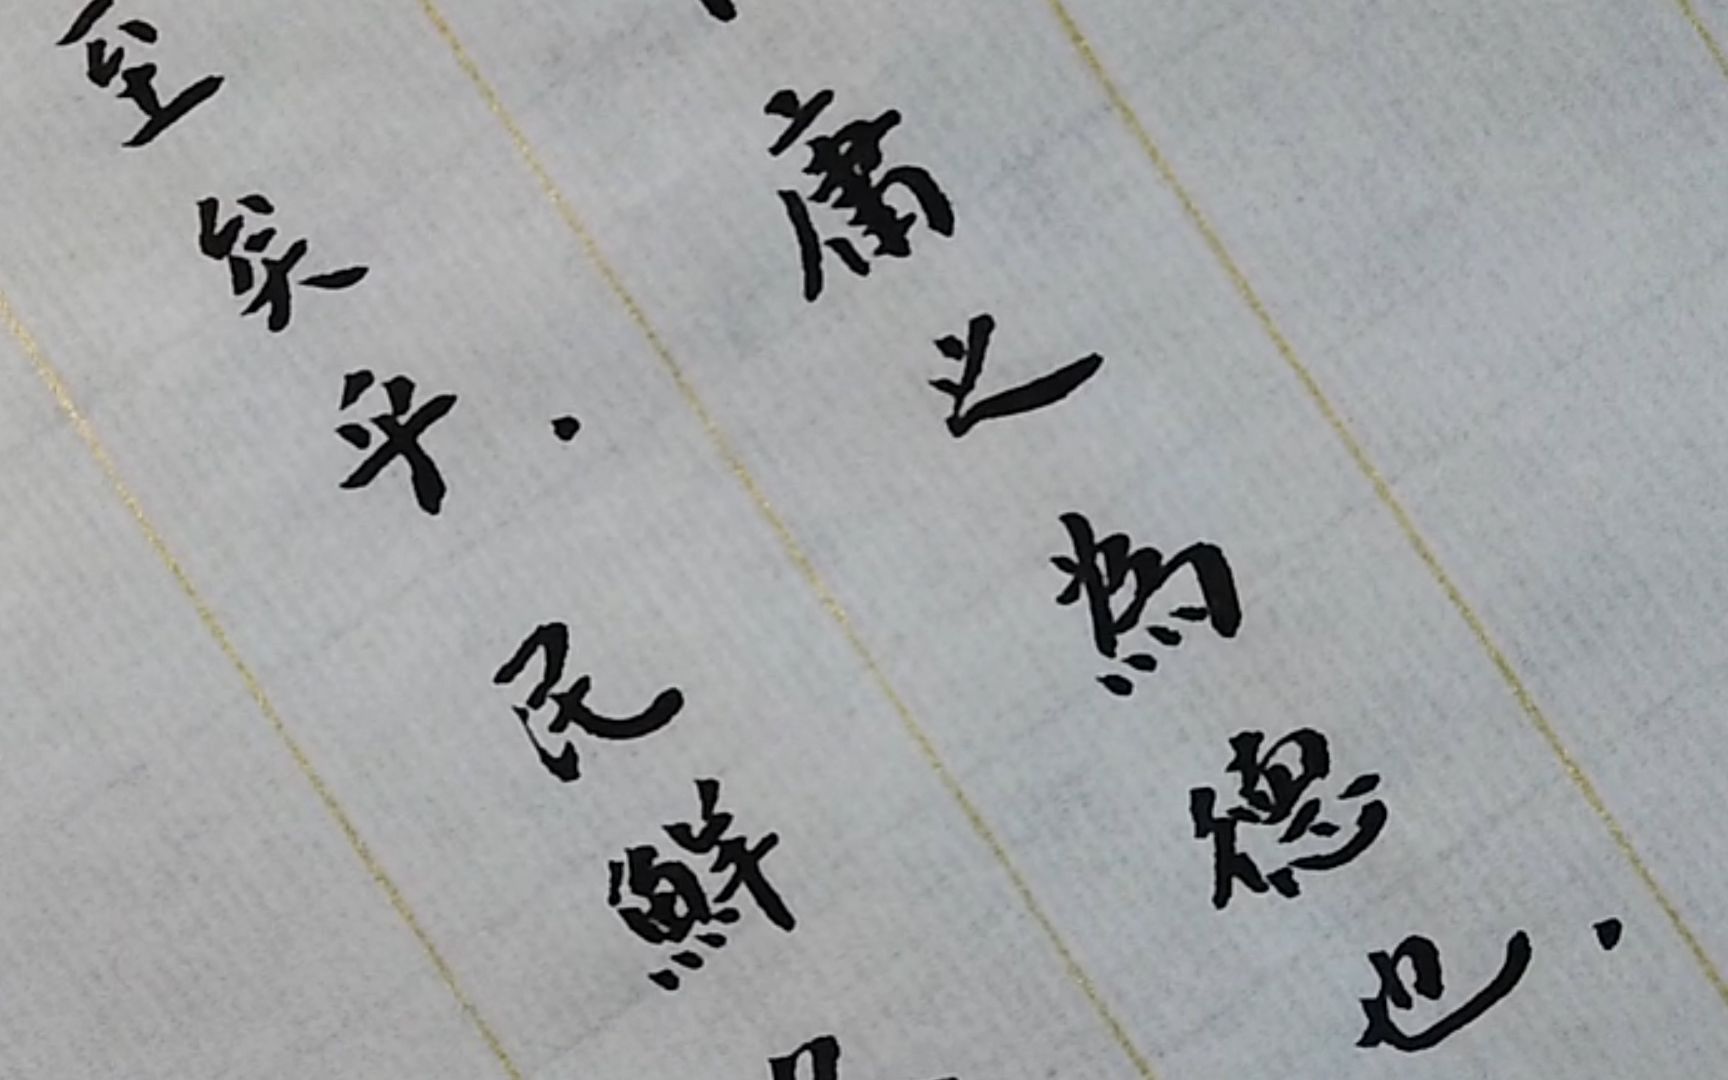 庸之為德也．
至矣乎．民鮮